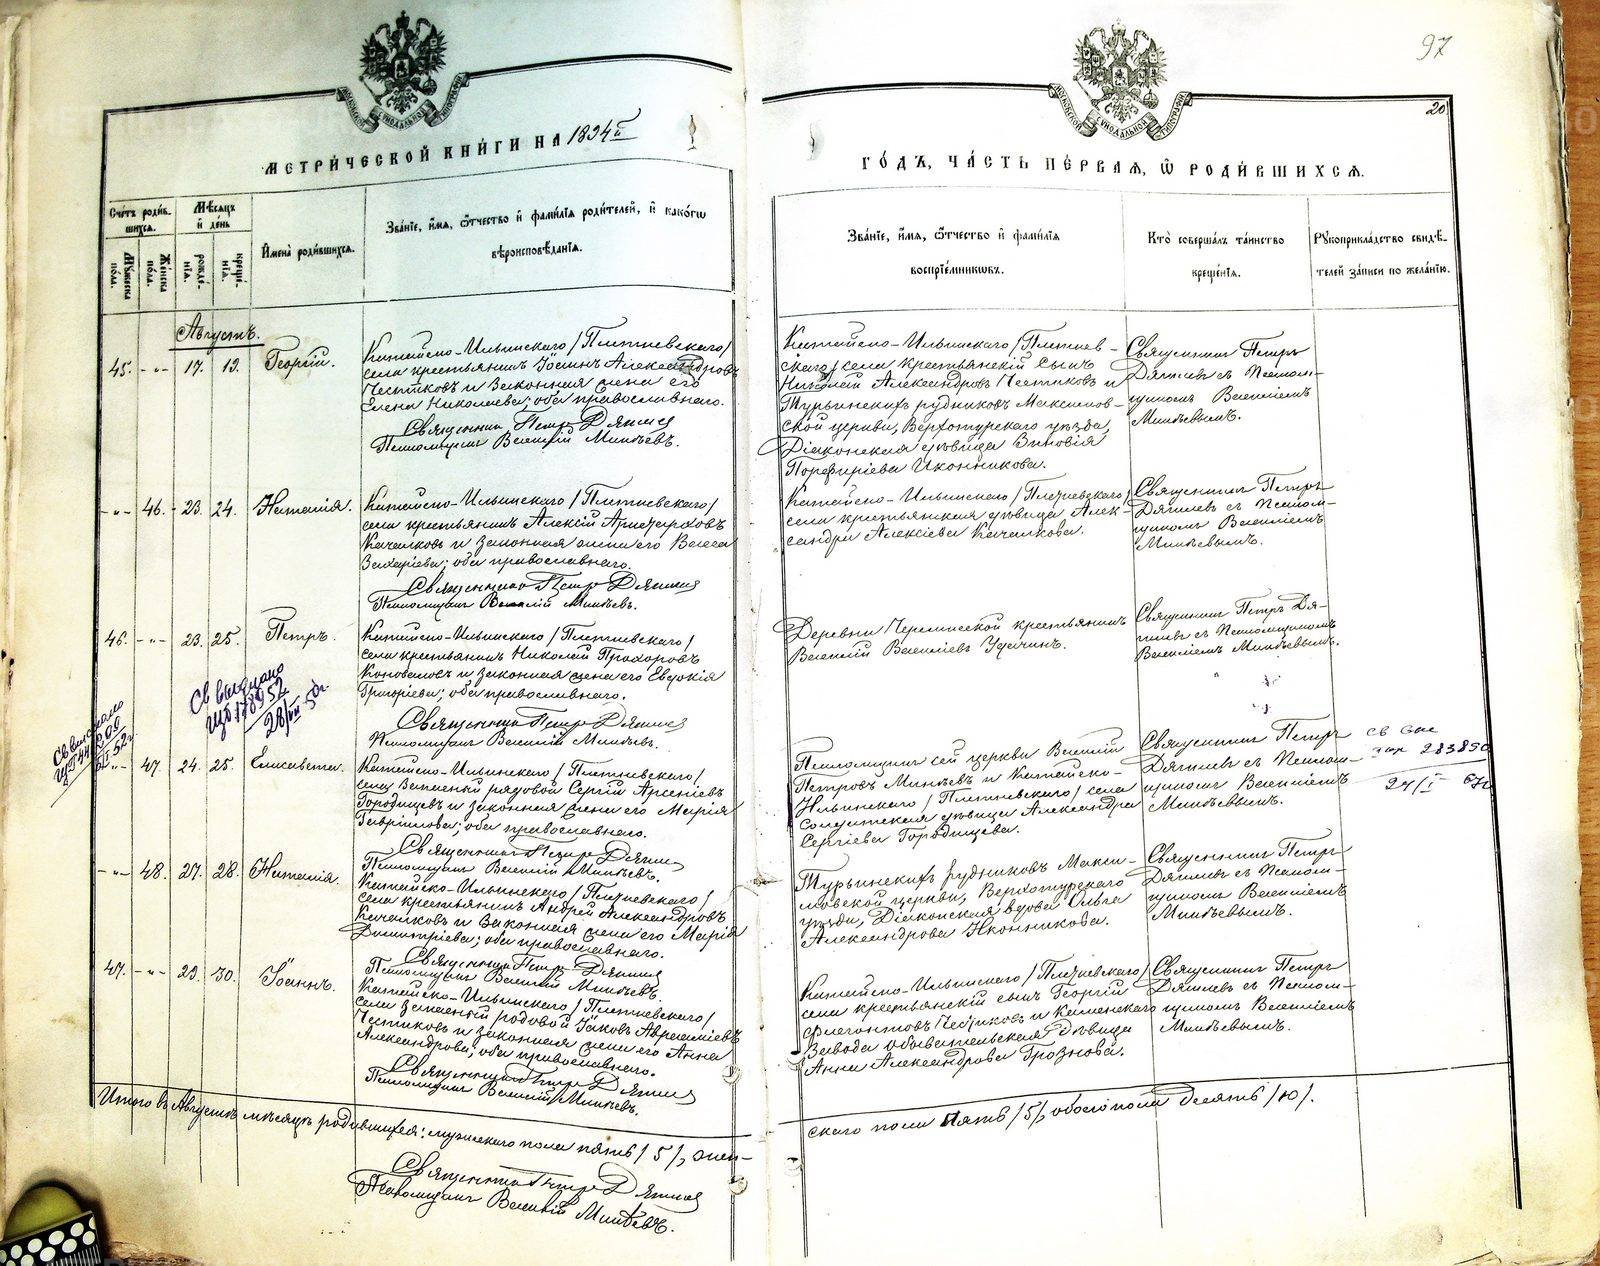 97
20
МОСКОВСКОЙ СѴНОДАЛЬНОЙ ТИПОГРАФІИ
МОСКОВСКОЙ СѴНОДАЛЬНОЙ ТИПОГРАФІИ
МЕТРИ́ЧЕСКОЙ КНИ́ГИ НА 1894й
ГО́ДЪ, ЧА́СТЬ ПЕ́РВАѦ, Ѡ҆ РОДИ́ВШИХСѦ.
Сче́тъ роди́в-
шихсѧ.
Мꙋ́жеска по́ла.
Же́нска по́ла.
Мѣ́сѧцъ и҆ де́нь
рожде́-
нїѧ.
креще́-
нїѧ.
И҆мена̀ роди́вшихсѧ.
Зва́нїе, и҆́мѧ, ѻ҆́тчество и҆ фами́лїѧ роди́телей, и҆ како́гѡ
вѣроисповѣ́данїѧ.
Зва́нїе, и҆́мѧ, ѻ҆́тчество и҆ фами́лїѧ
воспрїе́мникѡвъ.
Кто̀ соверша́лъ та́инство
креще́нїѧ.
Рꙋкоприкла́дство свидѣ́-
телей за́писи по жела́нїю.
Августъ.
45. -"- 17. 19. Георгій.
Катайско-Ильинскаго /Плетневскаго/
села крестьянинъ Іоаннъ Александровъ
Честиковъ и законная жена его
Елена Николаева; оба православнаго.
Священникъ Петръ Дягилев
Псаломщикъ Василій Минѣевъ.
Катайско-Ильинскаго /Плетнев-
скаго/ села крестьянскій сынъ
Николай Александровъ Честиковъ и
Турьинскихъ рудниковъ Максимов-
ской церкви, Верхотурскаго уѣзда,
Діаконская дѣвица Зиновія
Порфиріева Иконникова.
Священникъ Петръ
Дягилевъ съ Псалом-
щикомъ Василіемъ
Минѣевымъ.
-"- 46. 23. 24. Наталія.
Катайско-Ильинскаго /Плетневскаго/
села крестьянинъ Алексій Аристарховъ
Качалковъ и законная жена его Васса
Захаріева; оба православнаго.
Священникъ Петръ Дягилев
Псаломщикъ Василій Минѣевъ.
Катайско-Ильинскаго /Плетневскаго/
села крестьянская дѣвица Алек-
сандра Алексіева Качалкова.
Священникъ Петръ
Дягилевъ съ Псалом-
щикомъ Василіемъ
Минѣевымъ.
46. -"- 23. 25. Петръ.
Катайско-Ильинскаго /Плетневскаго/
села крестьянинъ Николай Прохоровъ
Коноваловъ и законная жена его Евдокія
Григоріева; оба православнаго.
Священникъ Петръ Дягилев
Псаломщикъ Василій Минѣевъ.
Деревни Черемисской крестьянинъ
Василій Василіевъ Удачинъ.
Священникъ Петръ Дя-
гилевъ съ Псаломщикомъ
Василіемъ Минѣевымъ.
Св выдано
28/VII 50г
Св выдано
52г
-"- 47. 24. 25. Елисавета.
Катайско-Ильинскаго /Плетневскаго/
села Запасный рядовой Сергій Арсеніевъ
Городищевъ и законная жена его Марія
Гавріилова; оба православнаго.
Священникъ Петръ Дягилев
Псаломщикъ Василій Минѣевъ.
Псаломщикъ сей церкви Василій
Петровъ Минѣевъ и Катайско-
Ильинскаго /Плетневскаго/ села
Солдатская дѣвица Александра
Сергіева Городищева.
Священникъ Петръ
Дягилевъ съ Псалом-
щикомъ Василіемъ
Минѣевымъ.
283850
24/I 67г
-"- 48. 27. 28. Наталія.
Катайско-Ильинскаго /Плетневскаго/
села крестьянинъ Андрей Александровъ
Качалковъ и законная жена его Марія
Димитріева; оба православнаго.
Священникъ Петръ Дягилев
Псаломщикъ Василій Минѣевъ.
Турьинскихъ рудниковъ Макси-
мовской церкви, Верхотурскаго
уѣзда, Діаконская вдова Ольга
Александрова Иконникова.
Священникъ Петръ
Дягилевъ съ Псалом-
щикомъ Василіемъ
Минѣевымъ.
47. -"- 29. 30. Іоаннъ.
Катайско-Ильинскаго /Плетневскаго/
села запасный рядовой Іаковъ Авраміевъ
Честиковъ и законная жена его Анна
Александрова; оба православнаго.
Священникъ Петръ Дягилев
Псаломщикъ Василій Минѣевъ.
Катайско-Ильинскаго /Плетневскаго/
села крестьянскій сынъ Георгій
Флегонтовъ Честиковъ и Каменскаго
Завода обывательская дѣвица
Анна Александрова Грознова.
Священникъ Петръ
Дягилевъ съ Псалом-
щикомъ Василіемъ
Минѣевымъ.
Итого въ Августѣ мѣсяцѣ родившихся: мужескаго пола пять /5/, жен-
скаго пола пять /5/, обоего пола десять /10/.
Священникъ Петръ Дягилев
Псаломщикъ Василій Минѣевъ.